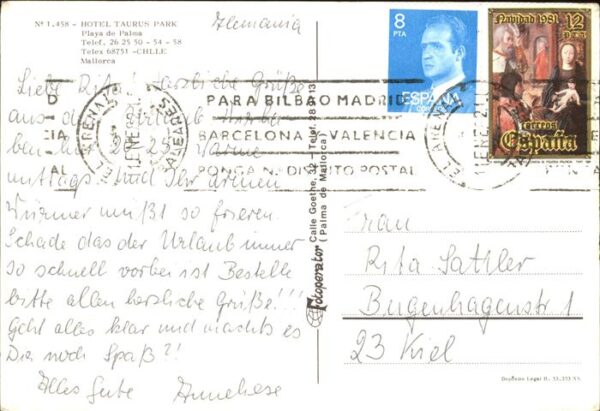 Nº 1.458 - HOTEL TAURUS PARK
Playa de Palma
Telef. 26 25 50 - 54 - 58
Telex 68751 -CHLLE
Mallorca
Alemania
Liebe Rita! Herzliche Grüße
aus dem Urlaub
ben
mittags. Und Ihr armen
Würmer müßt so frieren.
Schade das der Urlaub immer
so schnell vorbei ist Bestelle
bitte allen herzliche Grüße!!!
Geht alles klar und machts es
Dir noch Spaß?!
Alles Gute Anneliese
8
PTA
ESPAÑA
Navidad 1981 12
PTA
Correos
España
EL ARENAL
BALEARES
PARA BILBAO MADRID
BARCELONA O VALENCIA
PONGA N. DISTRITO POSTAL
EL ARENAL
Fotoperator Calle Goethe, 32 - Telef. 28 13
(Palma de Mallorca)
Frau
Rita Sattler
Bugenhagenstr 1
23 Kiel